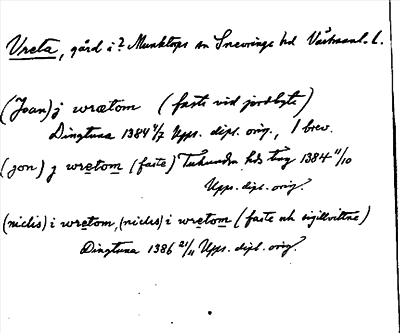 Vreta, gård i? Munktorps sn Snevringe hd Västmanl. l.
(Joan) j wrætom (faste vid jordbyte)
Dingtuna 1384 4/7 Upps. dipl. orig., 1 brev.
(jon) j wretom (faste) Tuhundra hds ting 1384 11/10
Upps. dipl. orig.
(niclis) i wretom, (niclis) i wretom (faste och sigillvittne)
Dingtuna 1386 21/11 Upps. dipl. orig.